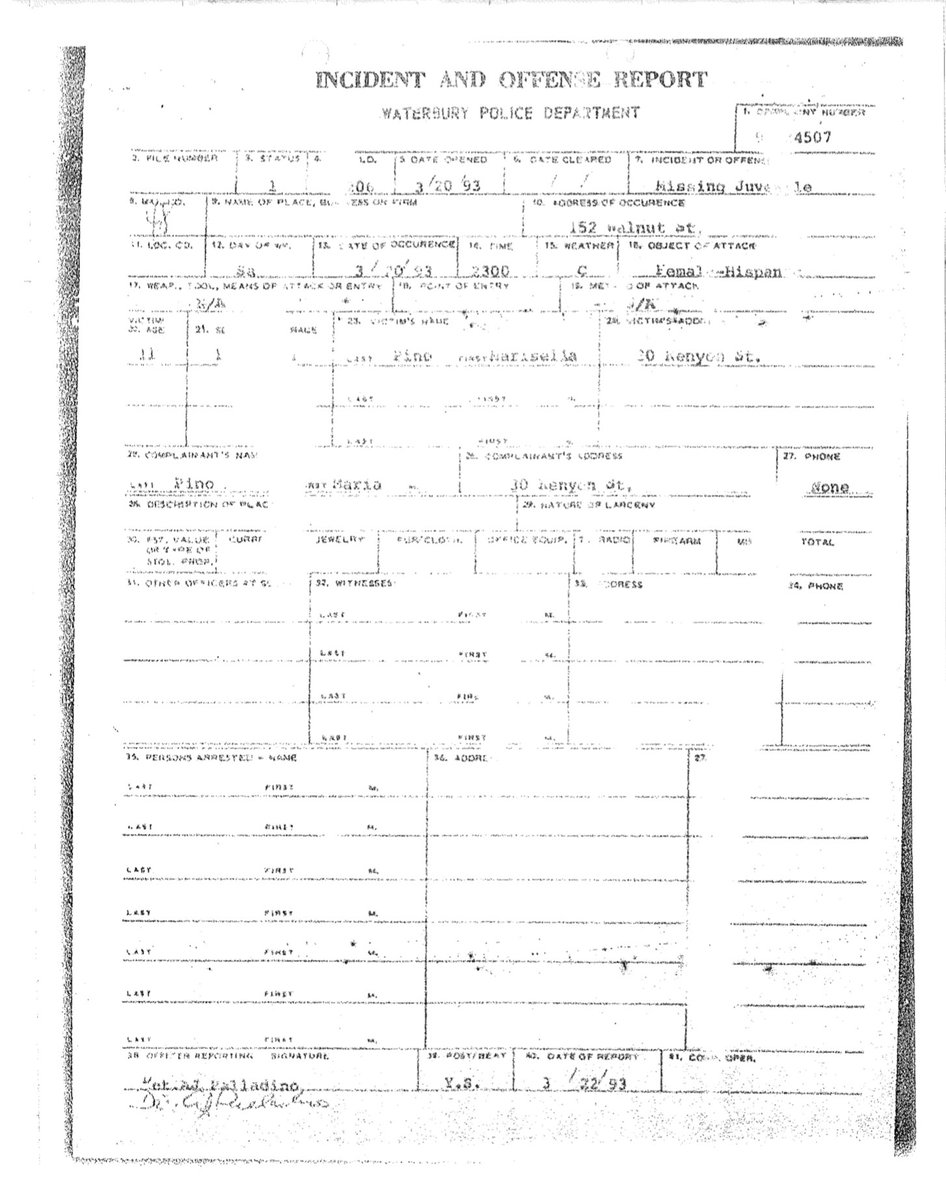 INCIDENT AND OFFENSE REPORT
WATERBURY POLICE DEPARTMENT
1. COMPLAINT NUMBER
4507
2. FILE NUMBER 3. STATUS 4. I.D. 5 DATE OPENED 6. DATE CLEARED 7. INCIDENT OR OFFENSE
1 06 3/20/93 / / Missing Juve le
9. NAME OF PLACE, BUSINESS OR FIRM 10. ADDRESS OF OCCURENCE
152 Walnut St.
11. LOC. CD. 12. DAY OF WK. 13. DATE OF OCCURENCE 14. TIME 15. WEATHER 16. OBJECT OF ATTACK
Sa 3/20/93 2300 C Femal -Hispan
17. WEAP., TOOL, MEANS OF ATTACK OR ENTRY 18. POINT OF ENTRY 19. METHOD OF ATTACK
N/A
VICTIM
20. AGE 21. SE RACE 23. VICTIM'S NAME 24. VICTIM'S ADD
11 1 LAST Pino FIRST Mariselia 30 Kenyon St.
LAST FIRST M.
LAST FIRST M.
25. COMPLAINANT'S NAM 26. COMPLAINANT'S ADDRESS 27. PHONE
LAST Pino RST Maria M. 30 Kenyon St. None
28. DESCRIPTION OF PLAC 29. NATURE OF LARCENY
30. EST. VALUE CURRE JEWELRY FUR/CLOTH. OFFICE EQUIP. T RADIO FIREARM MIS TOTAL
OR TYPE OF
STOL. PROP.
31. OTHER OFFICERS AT SC 32. WITNESSES 33. ADDRESS 34. PHONE
LAST FIRST M.
LAST FIRST M.
LAST FIRS M.
LAST FIRST M.
35. PERSONS ARRESTED - NAME 36. ADDRE 37.
LAST FIRST M.
LAST FIRST M.
LAST FIRST M.
LAST FIRST M.
LAST FIRST M.
LAST FIRST M.
LAST FIRST M.
38. OFFICER REPORTING SIGNATURE 39. POST/BEAT 40. DATE OF REPORT 41. COMP. OPER.
Palladino, Y.S. 3/22/93